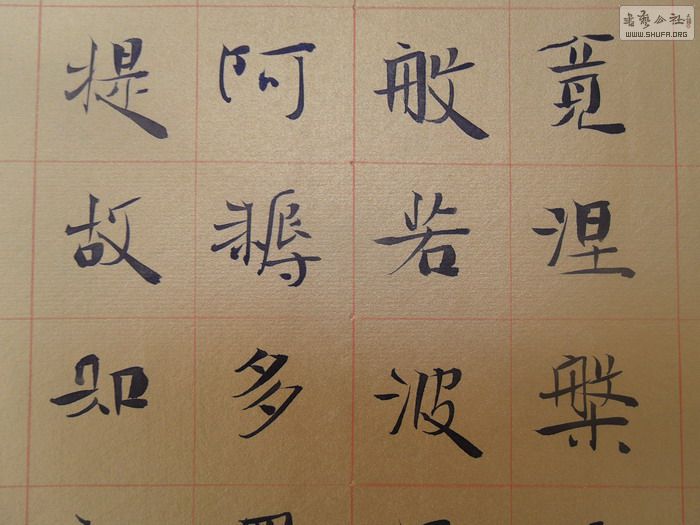 竟涅槃
般若波
阿耨多
提故知
書藝公社
WWW.SHUFA.ORG